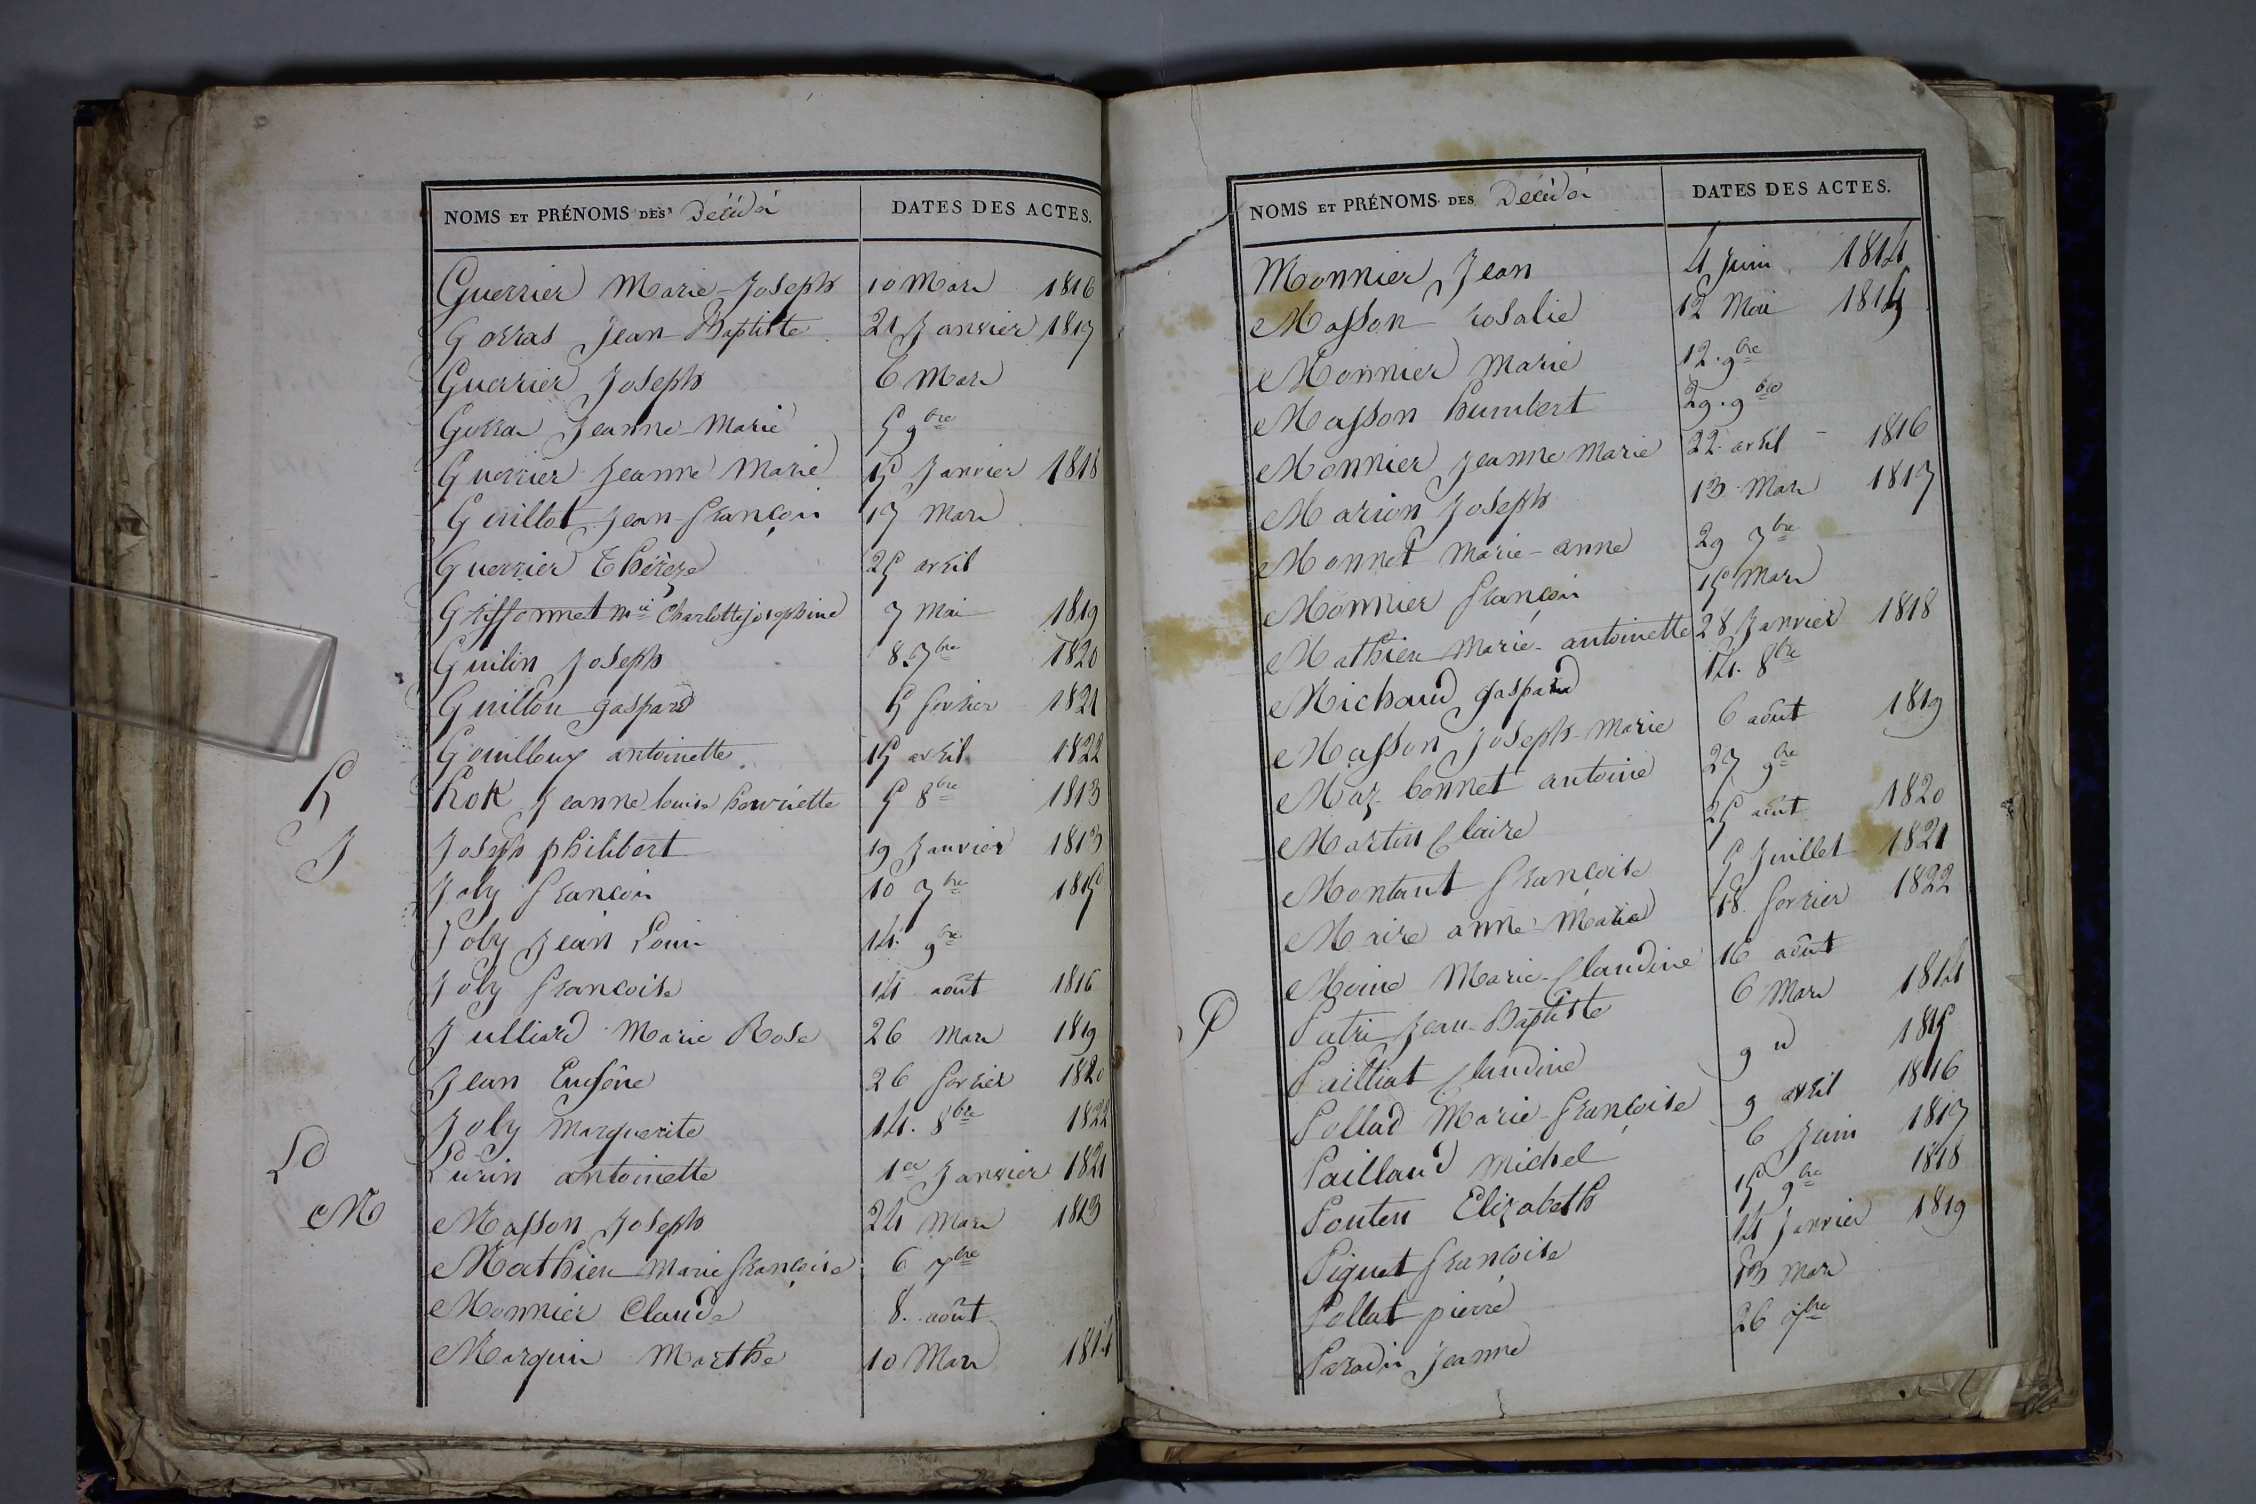 NOMS ET PRÉNOMS DES Décédés DATES DES ACTES.
Guerrier Marie-Joseph 10 Mars 1816
Gorras Jean-Baptiste 21 Janvier 1817
Guerrier Joseph 6 Mars
Gorras Jeanne-Marie 5 9bre
Guerrier Jeanne Marie 15 Janvier 1818
Guillot Jean-françois 17 Mars
Guerrier Thérèze 25 avril
Griffonnet mie Charlotte josephine 7 Mai 1819
Guilin Joseph 8 7bre 1820
Guillou gaspard 5 fevrier 1821
Gouilloux antoinette 15 avril 1822
h
hok Jeanne louise henriette 5 8bre 1813
J
Joseph philibert 19 Janvier 1813
Joly françois 10 7bre 1815
Joly Jean Louis 14. 9bre
Joly françoise 14 août 1816
Julliard Marie Rose 26 Mars 1819
Jean Eugêne 26 fevrier 1820
Joly Marguerite 14. 8bre 1822
L
Lurin antoinette 1er Janvier 1821
M
Masson Joseph 24 Mars 1813
Mathieu Marie françoise 6 7bre
Monnier Claude 8. août
Marquis Marthe 10 Mars 1814
NOMS ET PRÉNOMS DES Décédés DATES DES ACTES.
Monnier Jean 4 Juin 1814
Masson rosalie 12 Mai 1815
Monnier Marie 12. 9bre
Masson humbert 29. 9bre
Monnier Jeanne Marie 22 avril - 1816
Marion Joseph 13 Mars 1817
Monnet Marie-anne 29 7bre
Monnier françois 15 Mars
Mathieu Marie-antoinette 28 Janvier 1818
Michaud gaspard 14. 8bre
Masson Joseph-Marie 6 août 1819
Maz-bonnet antoine 27 9bre
Martin Claire 25 août 1820
Montant françoise 5 Juillet 1821
Maire anne-Maria 18 fevrier 1822
Moine Marie-Claudine 16 août
P
Putri Jean-Baptiste 6 Mars 1814
Pailliat Claudine 9 d 1815
Pollad Marie-françoise 9 avril 1816
Paillaud Michel 6 Juin 1817
Pouten Elizabeth 15 9bre 1818
Piguet françoise 14 Janvier 1819
Pollat pierre 13 Mars
Paradis Jeanne 26 7bre